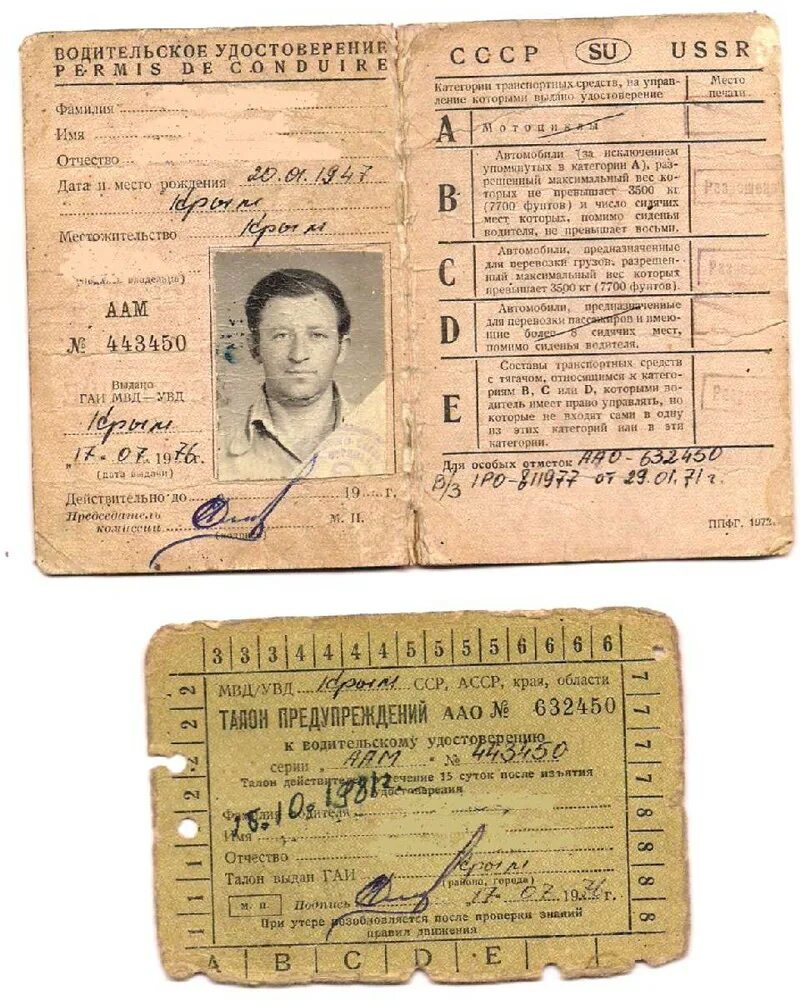 ВОДИТЕЛЬСКОЕ УДОСТОВЕРЕНИЕ
PERMIS DE CONDUIRE
Фамилия
Имя
Отчество
Дата и место рождения 20.01.1947
Крым
Местожительство Крым
владельца)
ААМ
№ 443450
Выдано
ГАИ МВД—УВД
Крым
„17“ 07 1976г.
(дата выдачи)
Действительно до 19 г.
Председатель
комиссии
М. П.
СССР SU USSR
Категории транспортных средств, на управ-
ление которыми выдано удостоверение
Место
печати
A Мотоциклы
B Автомобили (за исключением
упомянутых в категории А), раз-
решенный максимальный вес ко-
торых не превышает 3500 кг
(7700 фунтов) и число сидячих
мест которых, помимо сиденья
водителя, не превышает восьми.
C Автомобили, предназначенные
для перевозки грузов, разрешен-
ный максимальный вес которых
превышает 3500 кг (7700 фунтов).
D Автомобили, предназначенные
для перевозки пассажиров и имею-
щие более 8 сидячих мест,
помимо сиденья водителя.
E Составы транспортных средств
с тягачом, относящимся к катего-
риям В, С или D, которыми во-
дитель имеет право управлять, но
которые не входят сами в одну
из этих категорий или в эти
категории.
Для особых отметок ААО-632450
В/З 1РО-811977 от 29.01.71г.
ППФГ. 1972.
3 3 3 4 4 4 4 5 5 5 5 6 6 6 6
2 2 2 2 1 1 1 1
7 7 7 7 8 8 8 8
МВД/УВД Крым ССР, АССР, края, области
ТАЛОН ПРЕДУПРЕЖДЕНИЙ ААО № 632450
к водительскому удостоверению
серии „ААМ“ № 443450
Талон действителен в течение 15 суток после изъятия
удостоверения
15.10.1981г.
Фамилия водителя
Имя
Отчество
Талон выдан ГАИ Крым
(района, города)
м. п. Подпись 17. 07 1976г.
При утере возобновляется после проверки знаний
правил движения
A B C D E